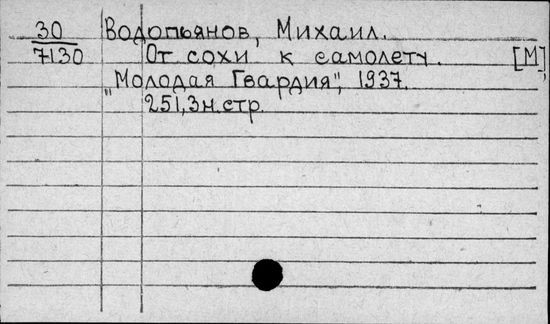 30 Водопьянов, Михаил.
7130 От сохи к самолету. [М],
"Молодая Гвардия", 1937.
251,3н.стр.